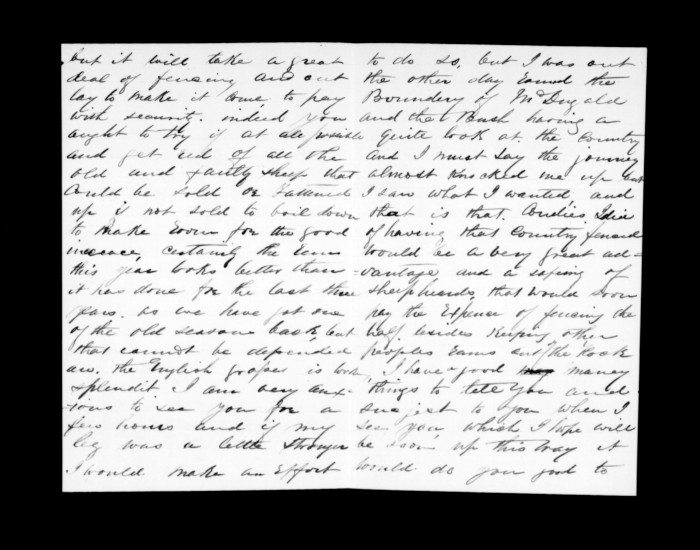 but it will take a great
deal of fencing and out
lay to make it Come to pay
with security. indeed you
aught to try if at all possible
and get red of all the
old and faulty sheep that
Could be sold or Fattened
up if not sold to boil down
to make room for the good
increace, Certainly the Rams
this year looks better than
it has done for the last three
years. as we have got one
of the old seasons back, but
that cannot be depended
on. the English grass is look
splendit I am very anx-
ious to see you for a
few hours and if my
leg was a little stronger
I would make an Effort
to do so, but I was out
the other day round the
Boundery of McDugald
and that Bush having a
quite look at the Country
and I must say the journey
almost knocked me up but
I saw what I wanted and
that is that. Andies Idie
of having that Country fenced
would be a very great ad=
-vantage and a safeing of
sheepheards. that would soon
pay the Expense of fencing the
half besides Keeping other
peoples rams out of the flock
I have good many
things to tell you and
sugjest to you when I
see you which I hope will
be soon up this way it
would do you good to